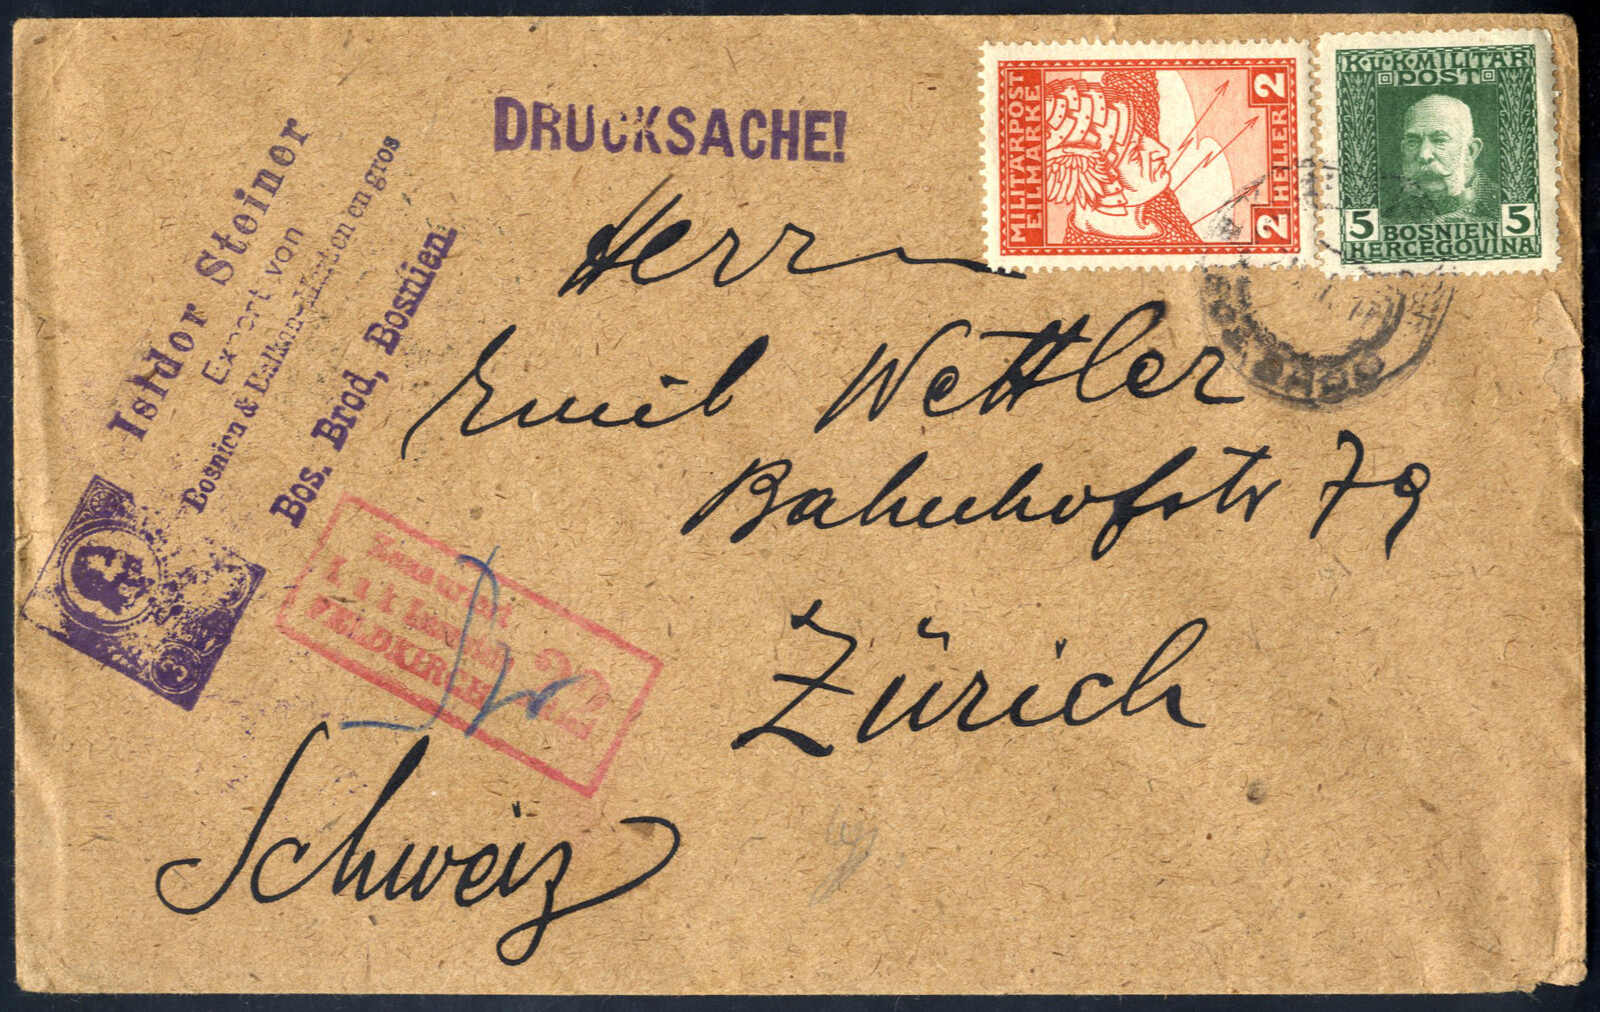 DRUCKSACHE!
MILITÄRPOST
EILMARKE
2 HELLER 2
K.u.K.MILITÄR
POST
5 5
BOSNIEN
HERCEGOVINA
Isidor Steiner
Export von
Bosnien & Balkan-Karten en gros
Bos. Brod, Bosnien.
3
Zensuriert
FELDKIRCH
22
Herrn
Emil Wettler
Bahnhofstr 79
Zürich
Schweiz